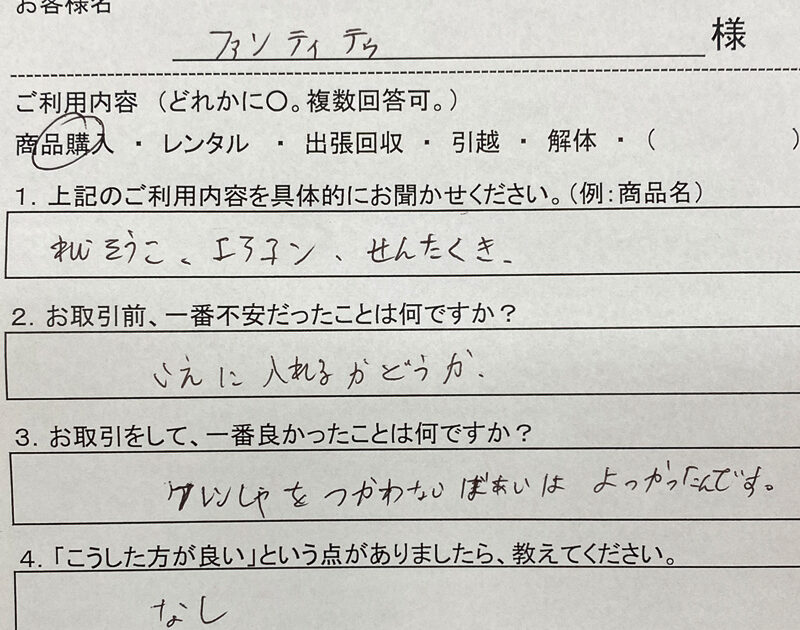 お客様名
ファンティテゥ 様
ご利用内容 (どれかに〇。複数回答可。)
商品購入 ・ レンタル ・ 出張回収 ・ 引越 ・ 解体 ・ ( )
1. 上記のご利用内容を具体的にお聞かせください。(例:商品名)
れいぞうこ、エアコン、せんたくき。
2. お取引前、一番不安だったことは何ですか?
いえに入れるかどうか。
3. お取引をして、一番良かったことは何ですか?
クレンしゃをつかわないばあいは よっかったんです。
4. 「こうした方が良い」という点がありましたら、教えてください。
なし